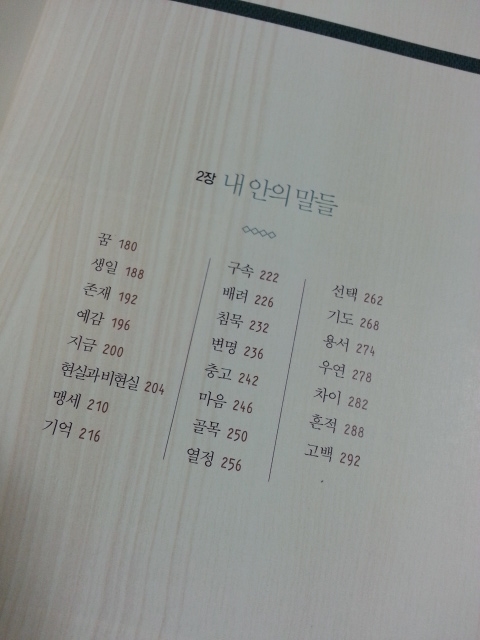 2장 내 안의 말들
꿈 180
생일 188
존재 192
예감 196
지금 200
현실과 비현실 204
맹세 210
기억 216
구속 222
배려 226
침묵 232
변명 236
충고 242
마음 246
골목 250
열정 256
선택 262
기도 268
용서 274
우연 278
차이 282
흔적 288
고백 292